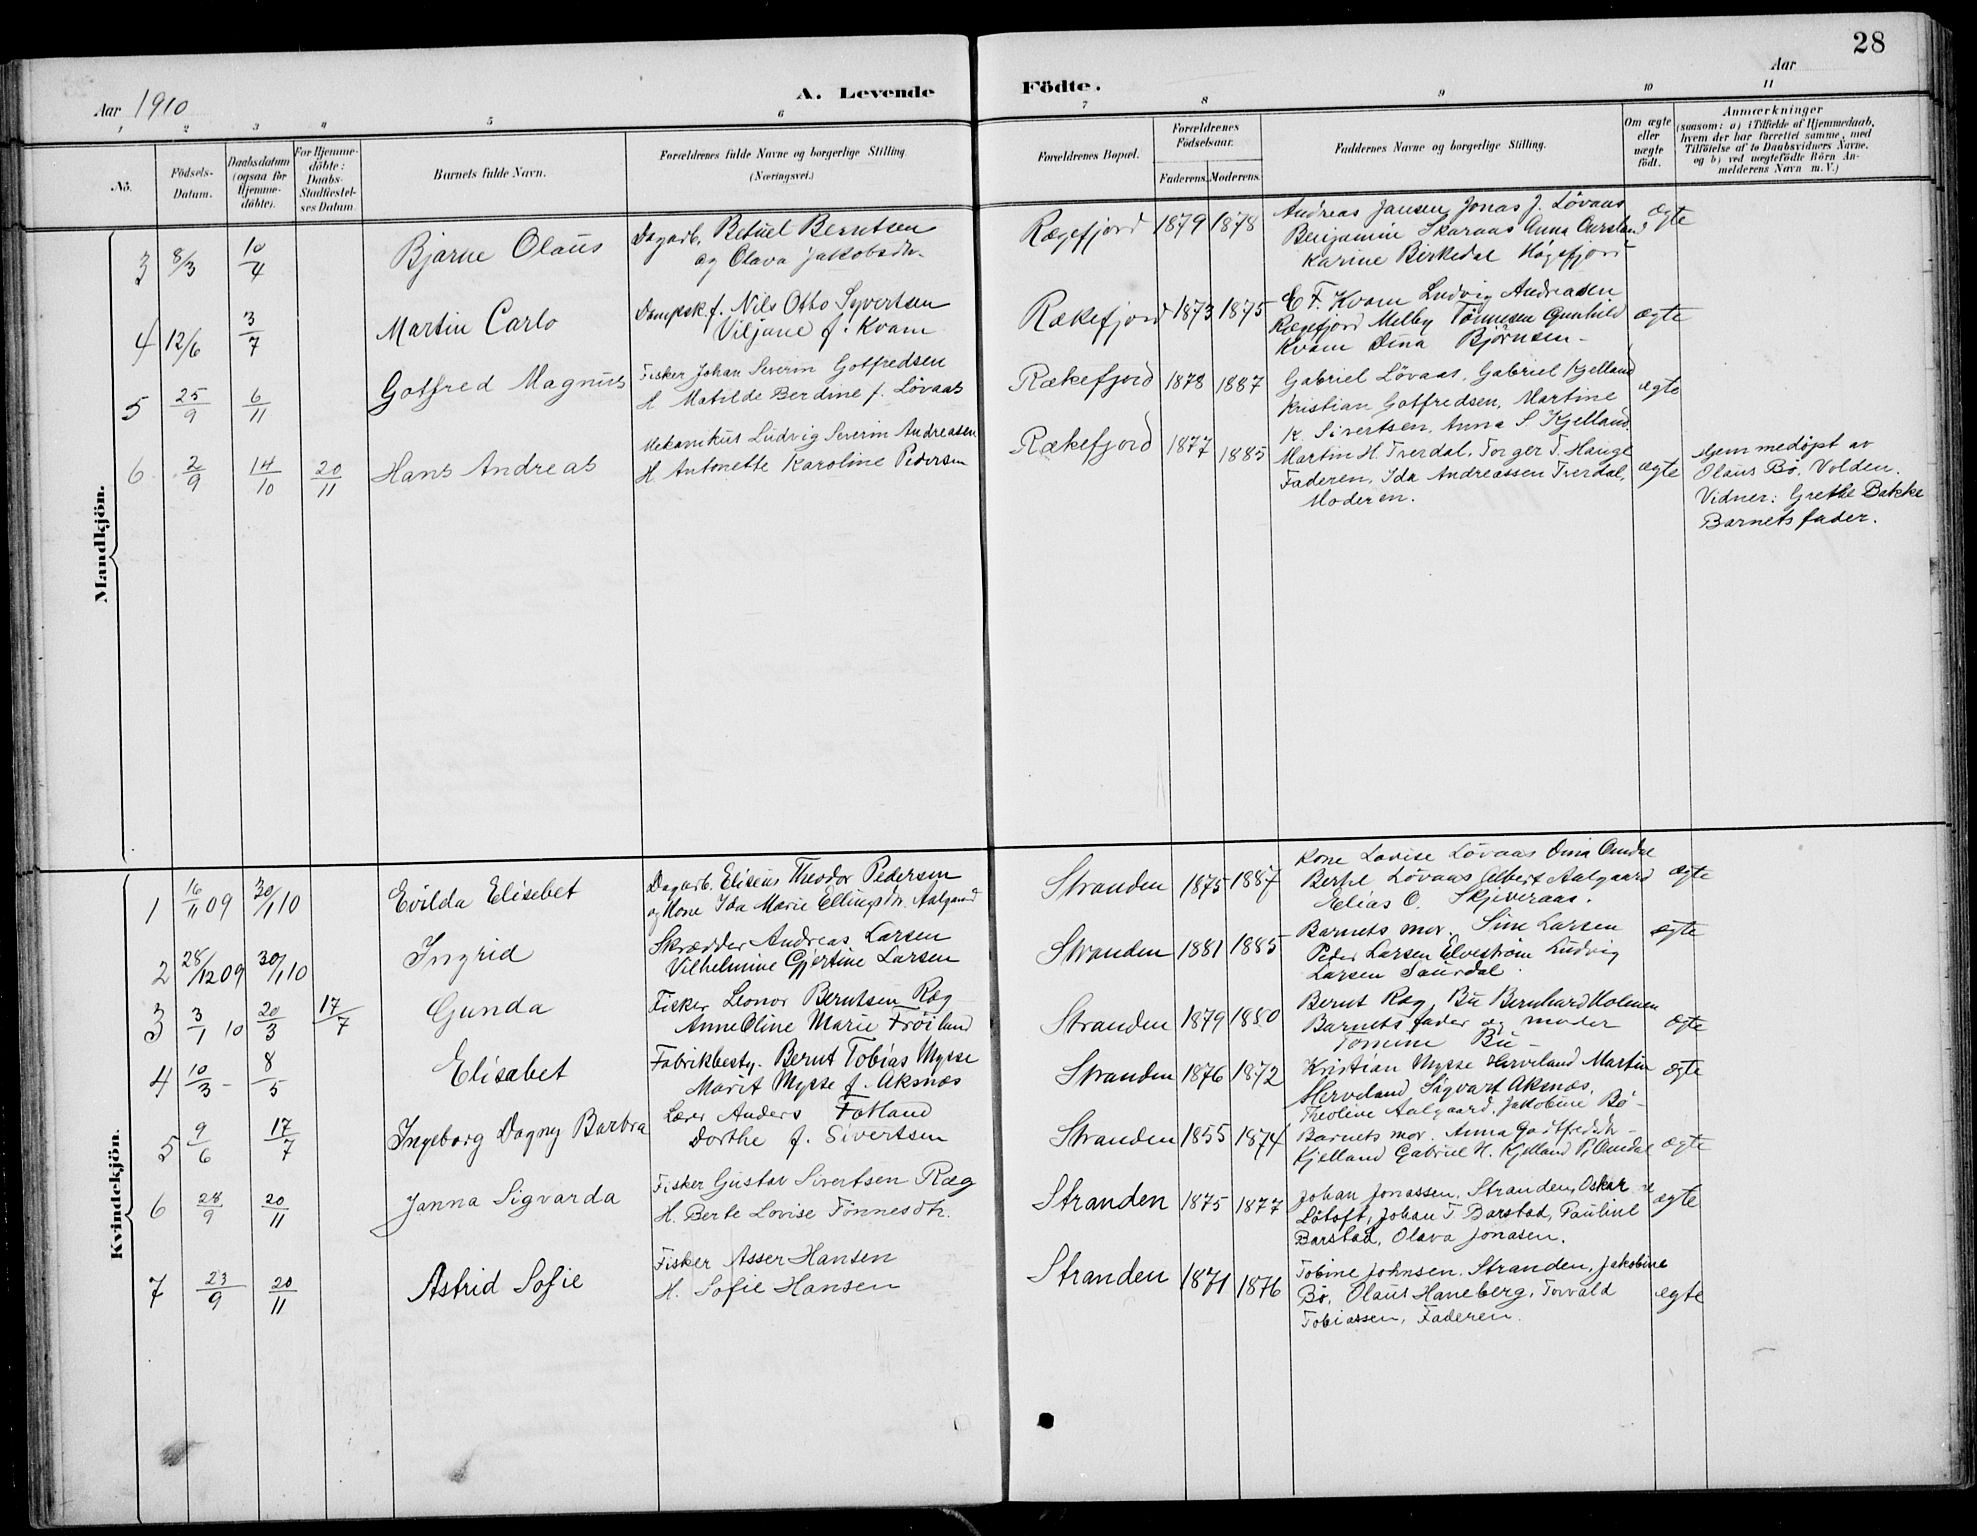 28
Aar 1910
A. Levende
Födte.
Aar
1 2 3 4 5 6 7 8 9 10 11
No.
Födsels-
Datum.
Daabsdatum
(ogsaa for
Hjemme-
döbte).
For Hjemme-
döbte:
Daabs-
Stadfæstel-
ses Datum.
Barnets fulde Navn.
Forældrenes fulde Navne og borgerlige Stilling
(Næringsvei.)
Forældrenes Bopæl.
Forældrenes
Födselsaar.
Faderens. Moderens.
Faddernes Navne og borgerlige Stilling.
Om ægte
eller
uægte
födt.
Anmærkninger
(saasom: a) i Tilfælde af Hjemmedaab,
hvem der har forrettet samme, med
Tilföielse af to Daabsvidners Navne.
og b) ved uægtefödte Börn An-
melderens Navn m. V.)
Mandkjön.
3 8/3 10/4 Bjarne Olaus
Dagarb. Betuel Berntsen
og Olava Jakobsdtr.
Rægefjord 1879 1878
Andreas Jansen Jonas J. Lövaas
Benjamin Skaraas Anna
Karine Birkedal Högsfjord
Ægte
4 12/6 3/7 Martin Carlo
Dampsk.f. Nils Otto Syvertsen
Viljane f. Kvam
Rækefjord 1873 1875
E F. Kvam Ludvig Andreasen
Rægefjord Melby Tönnesen Gunhild
Kvam Dina Björnsen-
ægte
5 25/9 6/11 Gotfred Magnus
Fisker Johan Severin Gotfredsen
H Matilde Berdine f. Lövaas
Rækefjord 1878 1887
Gabriel Lövaas, Gabriel Kjelland
Kristian Gotfredsen, Martine
K. Sivertsen, Anna S Kjelland.
ægte
6 2/9 14/10 20/11 Hans Andreas
Mekanikus Ludvig Severin Andreasen
H Antonette Karoline Pedersen
Rækefjord 1877 1885
Martin H. Tverdal, Torger T. Hauge
Faderen, Ida Andreassen Tverdal,
Moderen.
ægte
Hjemmedöpt av
Olaus Bö. Volden.
Vidner: Grethe Bakke
Barnets fader.
Kvindekjön.
1 16/11 09 30/1 10 Evilda Elisebet
Dagarb. Eliseus Theodor Pedersen
og Kone Ida Marie Ellingsdtr. Aalgaard
Stranden 1875 1887
Kone Lovise Lövaas Dina Omdal
Bertel Lövaas Albert Aalgaard
Elias O. Skjeveraas.
ægte
2 28/12 09 30/1 10 Ingrid
Skrædder Andreas Larsen
Vilhelmine Gjertine Larsen
Stranden 1881 1885
Barnets mor. Sine Larsen
Peder Larsen Elveström Ludvig
Larsen Saurdal.
ægte
3 3/1 10 20/3 17/7 Gunda
Fisker Leonor Berntsen Ræg
Anne Oline Marie Fröiland
Stranden 1879 1880
Bernt Ræg, Bu Bernhard Holmen
Barnets fader og moder
Tomine Bu-
Ægte
4 10/3 - 8/5 Elisabet
Fabrikbesty. Bernt Tobias Mysse
Marit Mysse f. Aksnæs
Stranden 1876 1872
Kristian Mysse Herveland Martin
Herveland Sigvart Aksnæs.
Theoline Aalgaard. Jakobine Bö-
Ægte
5 9/6 17/7 Ingeborg Dagny Barbra
Lærer Anders Fotland
Dorthe f. Sivertsen
Stranden 1855 1874
Barnets mor. Anna Gottfredsdtr-
Kjelland Gabriel H. Kjelland Omdal
ægte
6 28/9 20/11 Janna Sigvarda
Fisker Gustav Sivertsen Ræg
H. Berte Lovise Tönnesdtr.
Stranden 1875 1877
Johan Jonassen, Stranden, Oskar
Lötoft, Johan T Barstad, Pauline
Barstad, Olava Jonasen.
ægte
7 23/9 20/11 Astrid Sofie
Fisker Asser Hansen
H. Sofie Hansen
Stranden 1871 1876
Tobine Johnsen. Stranden, Jakobine
Bö, Olaus Haneberg, Torvald
Tobiassen, Faderen.
ægte